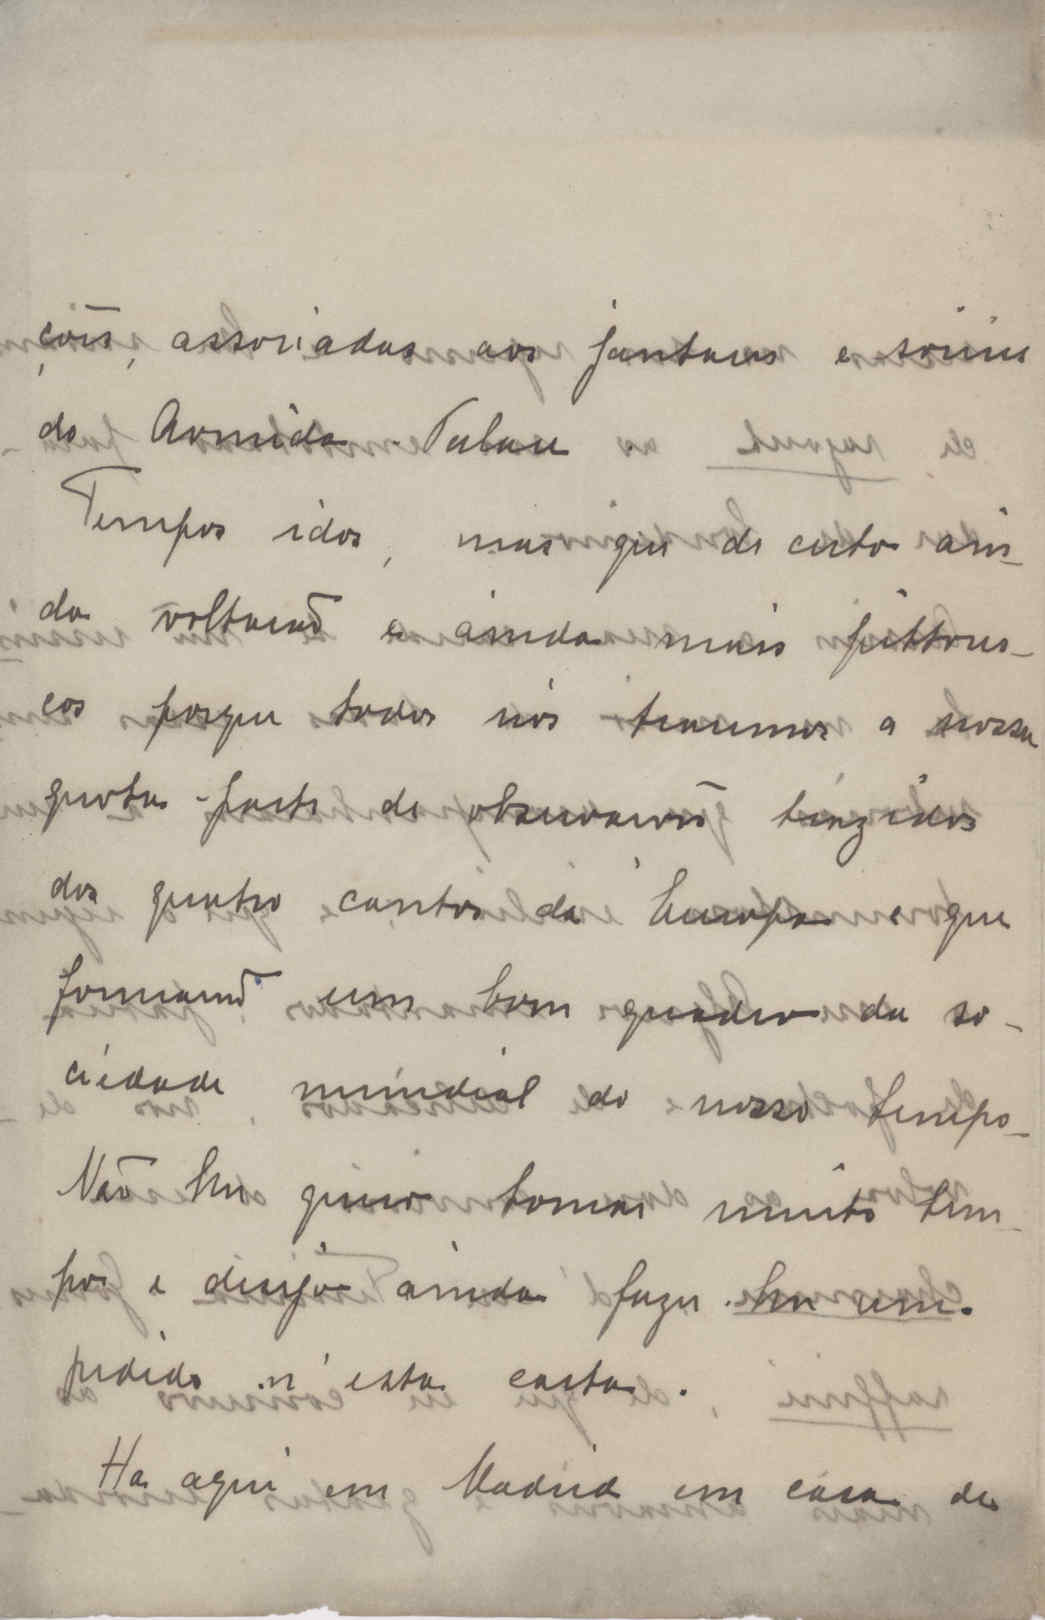 ções, associadas aos jantares e soirées
do Armida-Palace
Tempos idos, mas que de certo ain-
da voltarão e ainda mais pittores-
cos porque todos nós traremos a nossa
quota-parte de observações tingidas
dos quatro cantos da Europa e que
formarão um bom quadro da so-
ciedade mundial do nosso tempo-
Não lhe quero tomar muito tem-
po e desejo ainda fazer-lhe um
pedido n'esta carta.
Ha aqui em Madrid em casa de